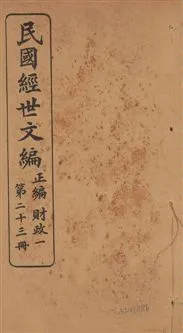 民國經世文編
正編 財政一
第二十三冊